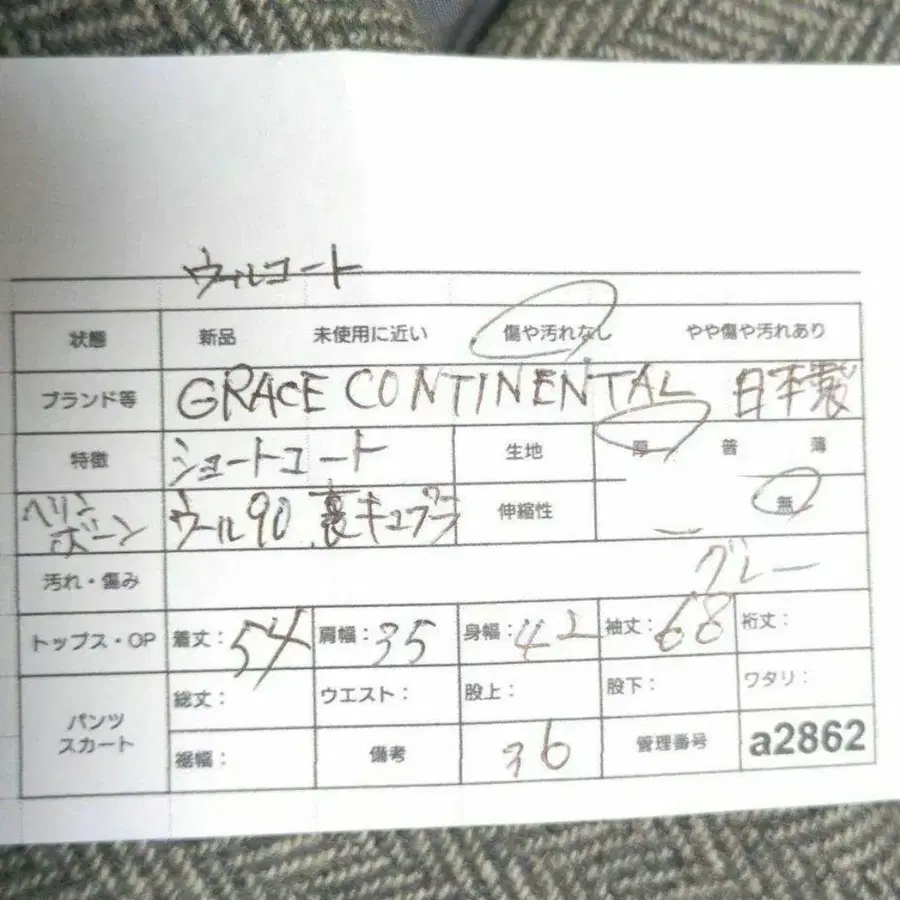 ウールコート
状態 新品 未使用に近い 傷や汚れなし やや傷や汚れあり
ブランド等 GRACE CONTINENTAL 日本製
特徴 ショートコート 生地 厚 普 薄
ヘリンボーン ウール90 裏キュプラ 伸縮性 無
汚れ・傷み グレー
トップス・OP 着丈:54 肩幅:35 身幅:42 袖丈:68 裄丈:
パンツ スカート 総丈: ウエスト: 股上: 股下: ワタリ:
裾幅: 備考 36 管理番号 a2862